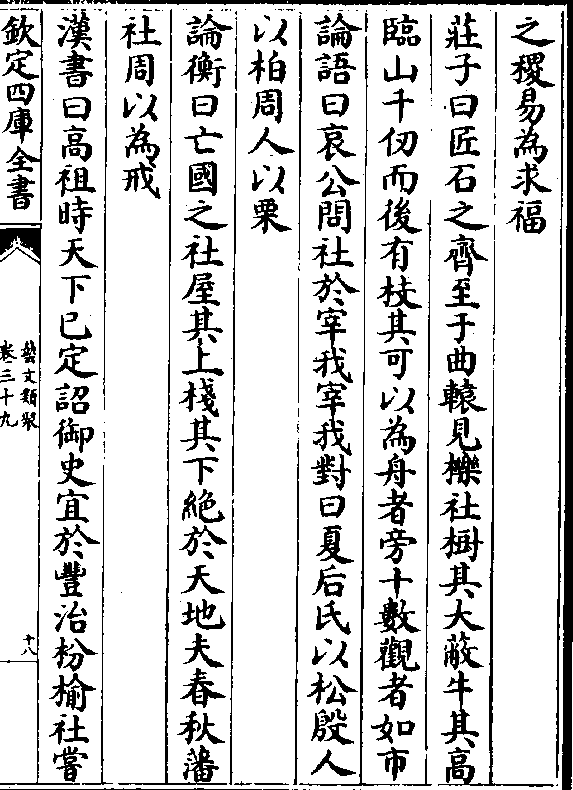 之稷易為求福
莊子曰匠石之齊至于曲轅見櫟社樹其大蔽牛其高
臨山千仞而後有枝其可以為舟者旁十數觀者如市
論語曰哀公問社於宰我宰我對曰夏后氏以松殷人
以柏周人以栗
論衡曰亡國之社屋其上棧其下絶於天地夫春秋藩
社周以為戒
漢書曰高祖時天下已定詔御史宜於豐治枌榆社嘗
欽定四庫全書
藝文類聚
卷三十九
十八